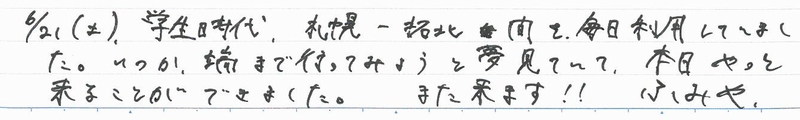 6/21(土)、学生時代、札幌ー拓北間を毎日利用していまし
た。いつか、端まで行ってみようと夢見ていて、本日やっと
来ることができました。 また来ます!! ふしみや.